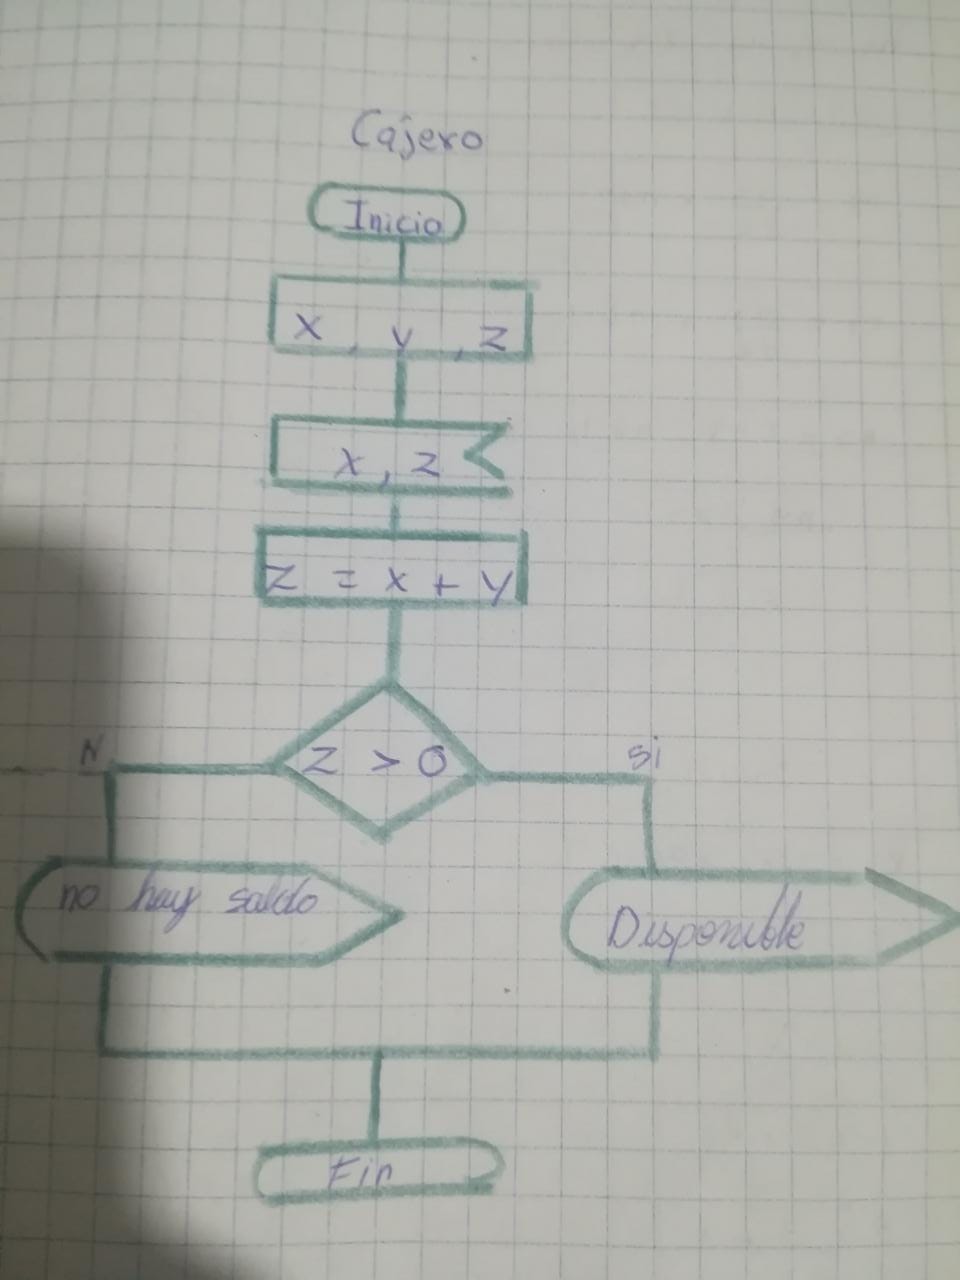 Cajero
Inicio
X , Y , Z
X , Z
Z = X + Y
Z > 0
N
si
no hay saldo
Disponible
Fin